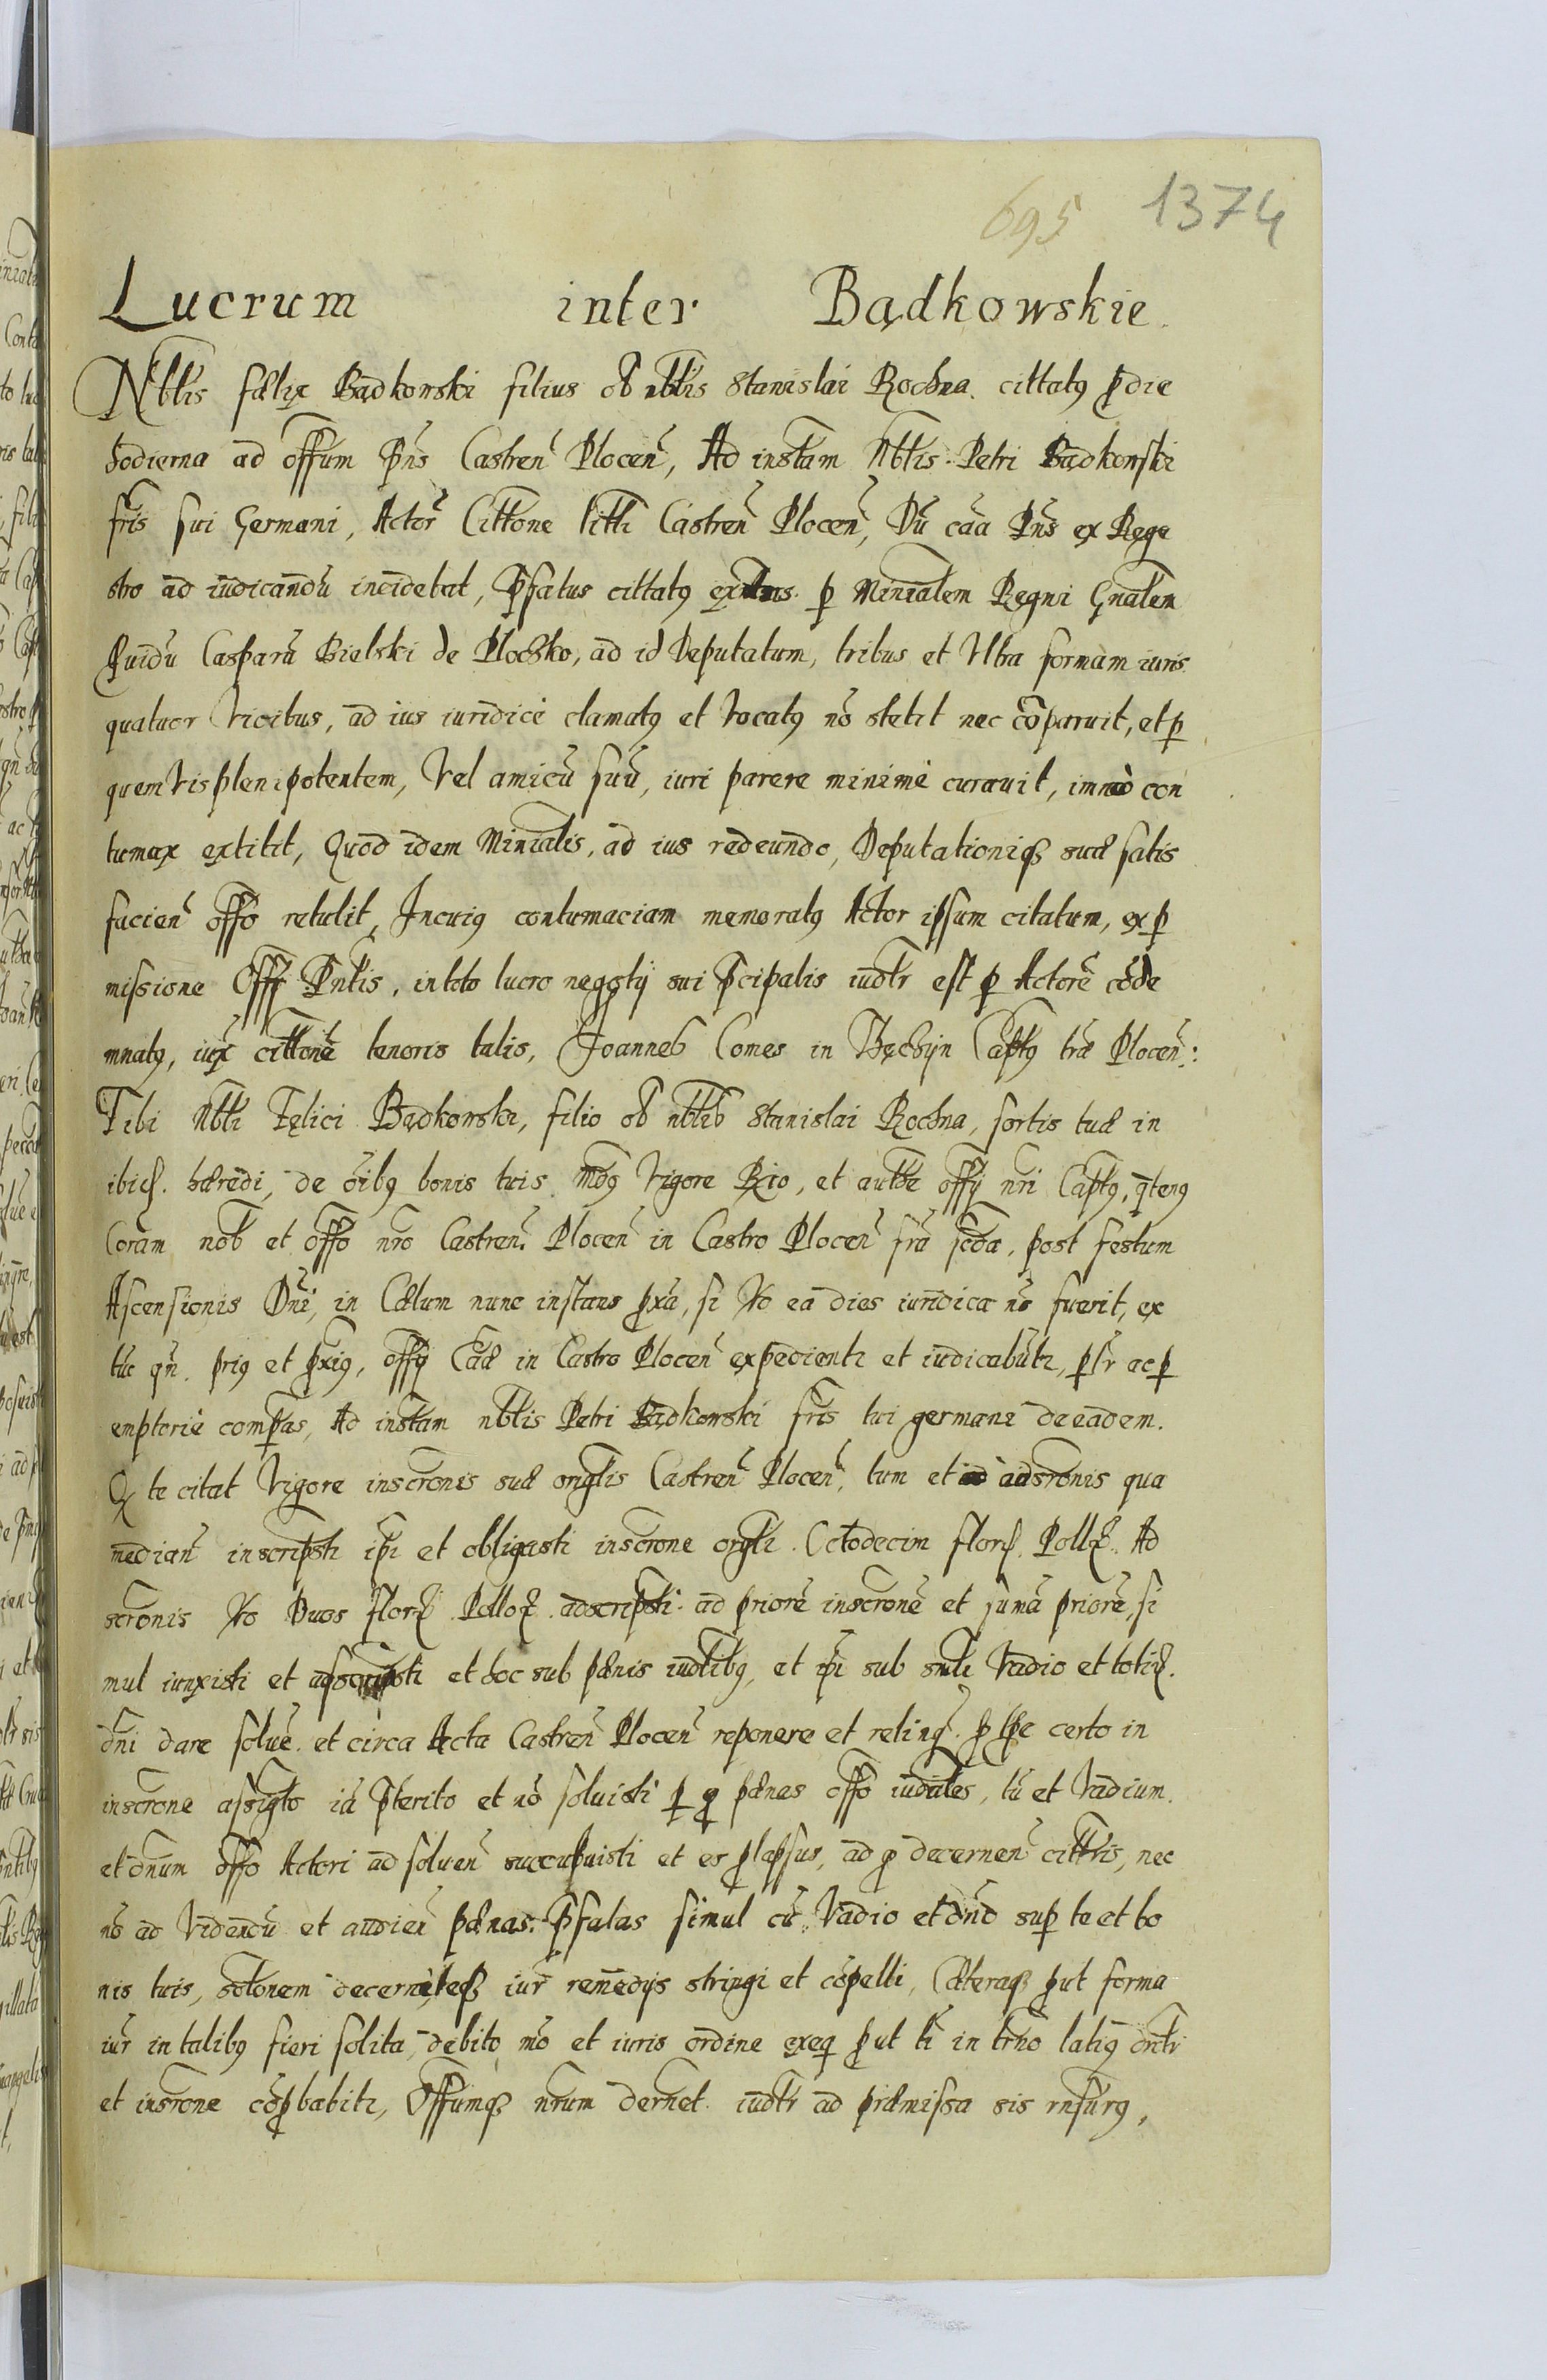 695 1374
Lucrum inter Bądkowskie.
Nbtis fælix Bądkowski filius ob nbtis Stanislai Rochna. cittatꝯ ꝓ die
hodierna ad offum Pn̄s Castren̄ Plocen̄, Ad instam Nbtis Petri Bądkowski
fris sui Germani, Actor̄ Cittone litti Castren̄ Plocen̄, Dū cāā Pn̄s ex Rege
stro ad iudicandū incidebat, P̄fatus cittatꝯ ꝑ Mini̅alem Regni Gn̄alem
Ꝓuidū Casparū Bielski de Plochko, ad id Deputatum, tribus et Ultra formam iuris
quatuor Vicibus, ad ius iuridicè clamatꝯ et Vocatꝯ nō stetit nec cōparuit, et ꝑ
quemvis plenipotentem, Vel amicū suū, iuri parere minimè curauit, immò con
tumax extitit, Quod idem Mini̅alis, ad ius redeundo, Deputationiqꝫ suæ satis
facien̄ offo retulit, Incuiꝯ contumaciam memoratꝯ Actor ipsum citatum, ex ꝑ
missione Offy Pn̄tis, in toto lucro negotij sui p̄cipalis iudtr est ꝑ Actorē cōde
mnatꝯ, iux cittonē tenoris talis, Joannes Comes in Tęchyn Captꝯ træ Plocen̄:
Tibi Nbti Fęlici Bądkowski, filio ob nbtis Stanislai Rochna, sortis tuæ in
ibid. hæredi, de ōibꝯ bonis tuis Mdꝯ Vigore Rio, et authe offy nri Captꝯ, q̄tenꝯ
Coram nob et offo nro Castren̄. Plocen̄ in Castro Plocen̄ fr̄a sc̄da, post festum
Ascensionis Dn̄i, in Cælum nunc instans ꝓxa, si Vo ea dies iuridica nō fuerit, ex
tūc qn̄. priꝯ et ꝓxiꝯ, offy Cāæ in Castro Plocen̄ expedienti et iudicabūt, ꝑlr ac ꝑ
emptoriè compas, Ad instam nbtis Petri Bądkowski fris tui germani de eadem.
Q te citat Vigore inscronis suæ origlis Castren̄ Plocen̄, tum et adscronis qua
median̄ inscripsti ip̄i et obligasti inscrone origli. Octodecim flor. Poll. Ad
scronis Vo Duos flor. Pollo. adscripsti ad priorē inscronē et sumā priorē, si
mul iunxisti et adscripsti et hoc sub pænis iudtibꝯ, et ip̄i sub smli Vadio et toti
dn̄i dare solue. et circa Acta Castren̄ Plocen̄ reponere et relinq. certo in
inscrone assigto iā p̄terito et nō soluisti ꝑ q pænas offo iudiales, tū et Vadium.
et dnum offo Actori ad soluen̄ succubuisti et es ꝓlapsus, ad q decernen̄ cittris, nec
nō ad Videndū et audien̄ pænas P̄fatas simul cū Vadio et dn̄o sup te et bo
nis tuis, sdtonem decerni, teqꝫ iur̄ remedijs stringi et cōpelli, Cæteraqꝫ ꝓut forma
iur̄ in talibꝯ fieri solita, debito mō et iuris ordine exeq ꝓut ti in trno latiꝯ dntr
et inscrone cōꝓbabiti, Offumqꝫ nrum dernet iudtr ad præmissa sis rnsurꝯ,